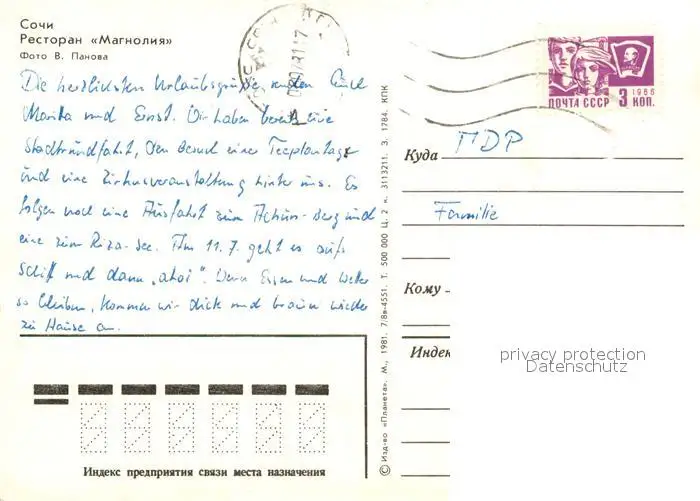 Сочи
Ресторан «Магнолия»
Фото В. Панова
Die herzlichsten Urlaubsgrüße senden Euch
Marita und Ernst. Wir haben bereits eine
Stadtrundfahrt, den Besuch einer Teeplantage
und eine Zirkusveranstaltung hinter uns. Es
folgen noch eine Ausfahrt zum Achun-Berg und
eine zum Riza-See. Am 11.7. geht es aufs
Schiff und dann „ahoi“. Wenn Essen und Wetter
so bleiben, kommen wir dick und braun wieder
zu Hause an.
Индекс предприятия связи места назначения
© Изд-во «Планета». М., 1981. 7/8в-4551. Т. 500 000 Ц. 2 к. 3113211. З. 1784. КПК
1966
ПОЧТА СССР 3 КОП.
Куда ГДР
Familie
Кому
Индек
privacy protection
Datenschutz